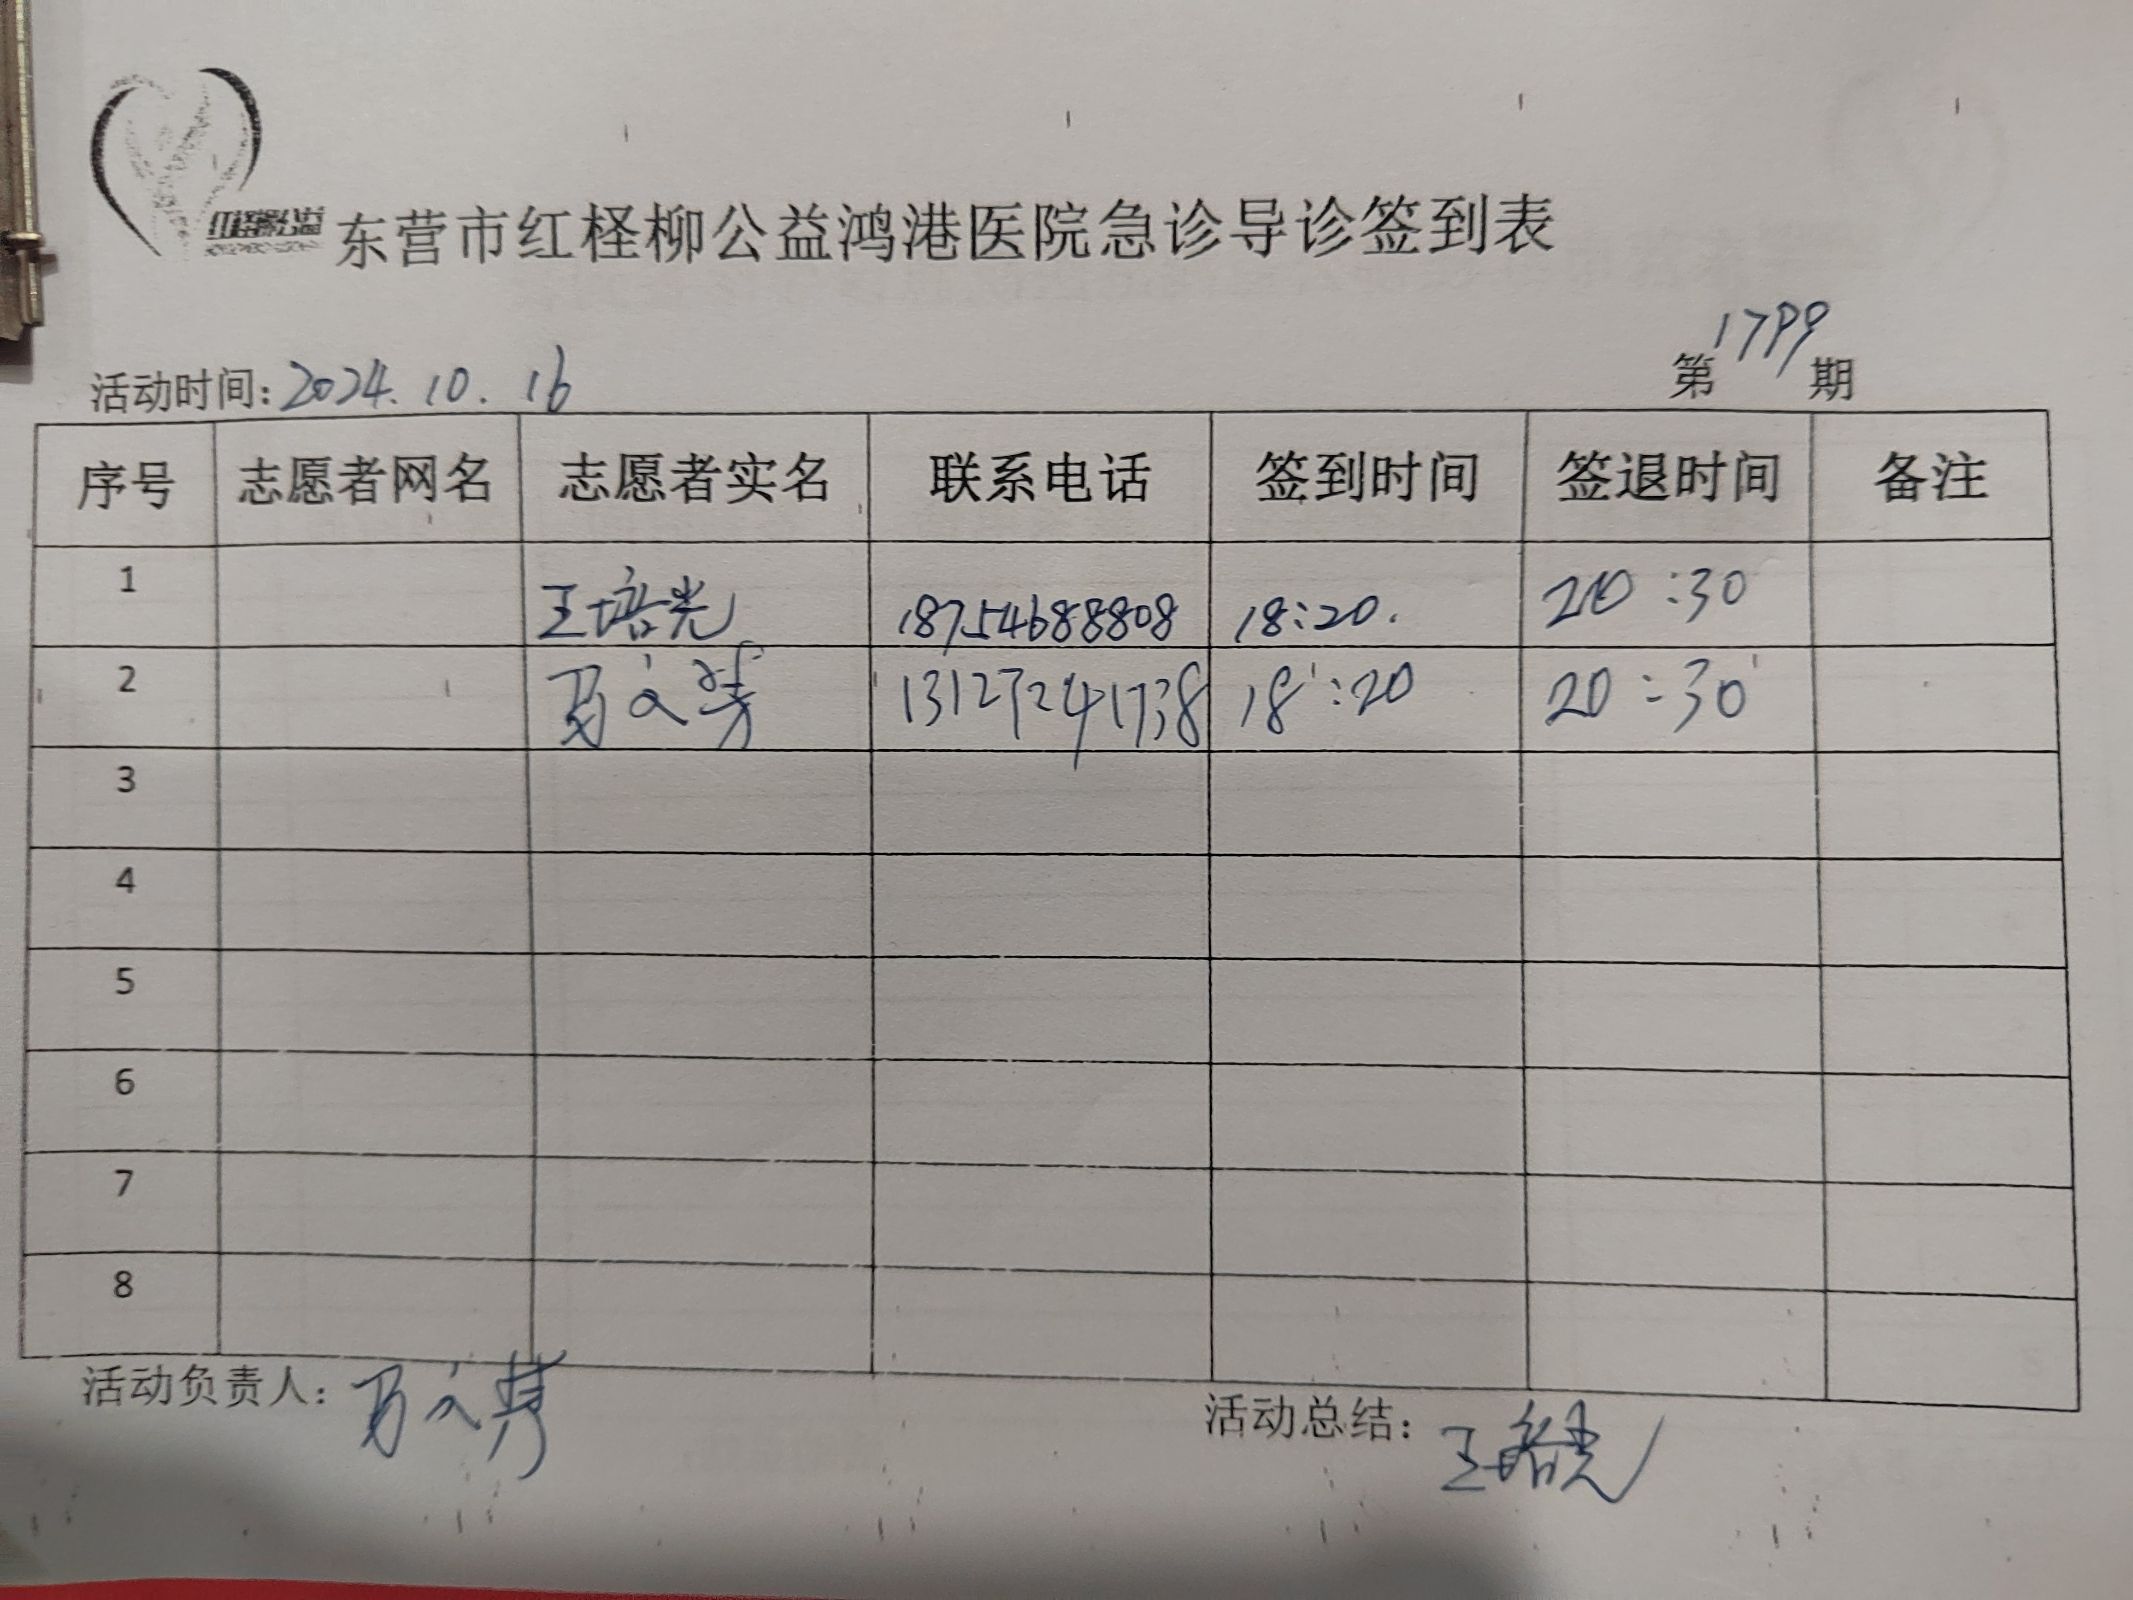 红柽柳公益
东营市红柽柳公益鸿港医院急诊导诊签到表
活动时间:2024.10.16 第1799期
序号 志愿者网名 志愿者实名 联系电话 签到时间 签退时间 备注
1 王培光 18754688808 18:20. 20:30
2 文 13127241738 18:20 20:30
3
4
5
6
7
8
活动负责人: 文 活动总结: 王培光